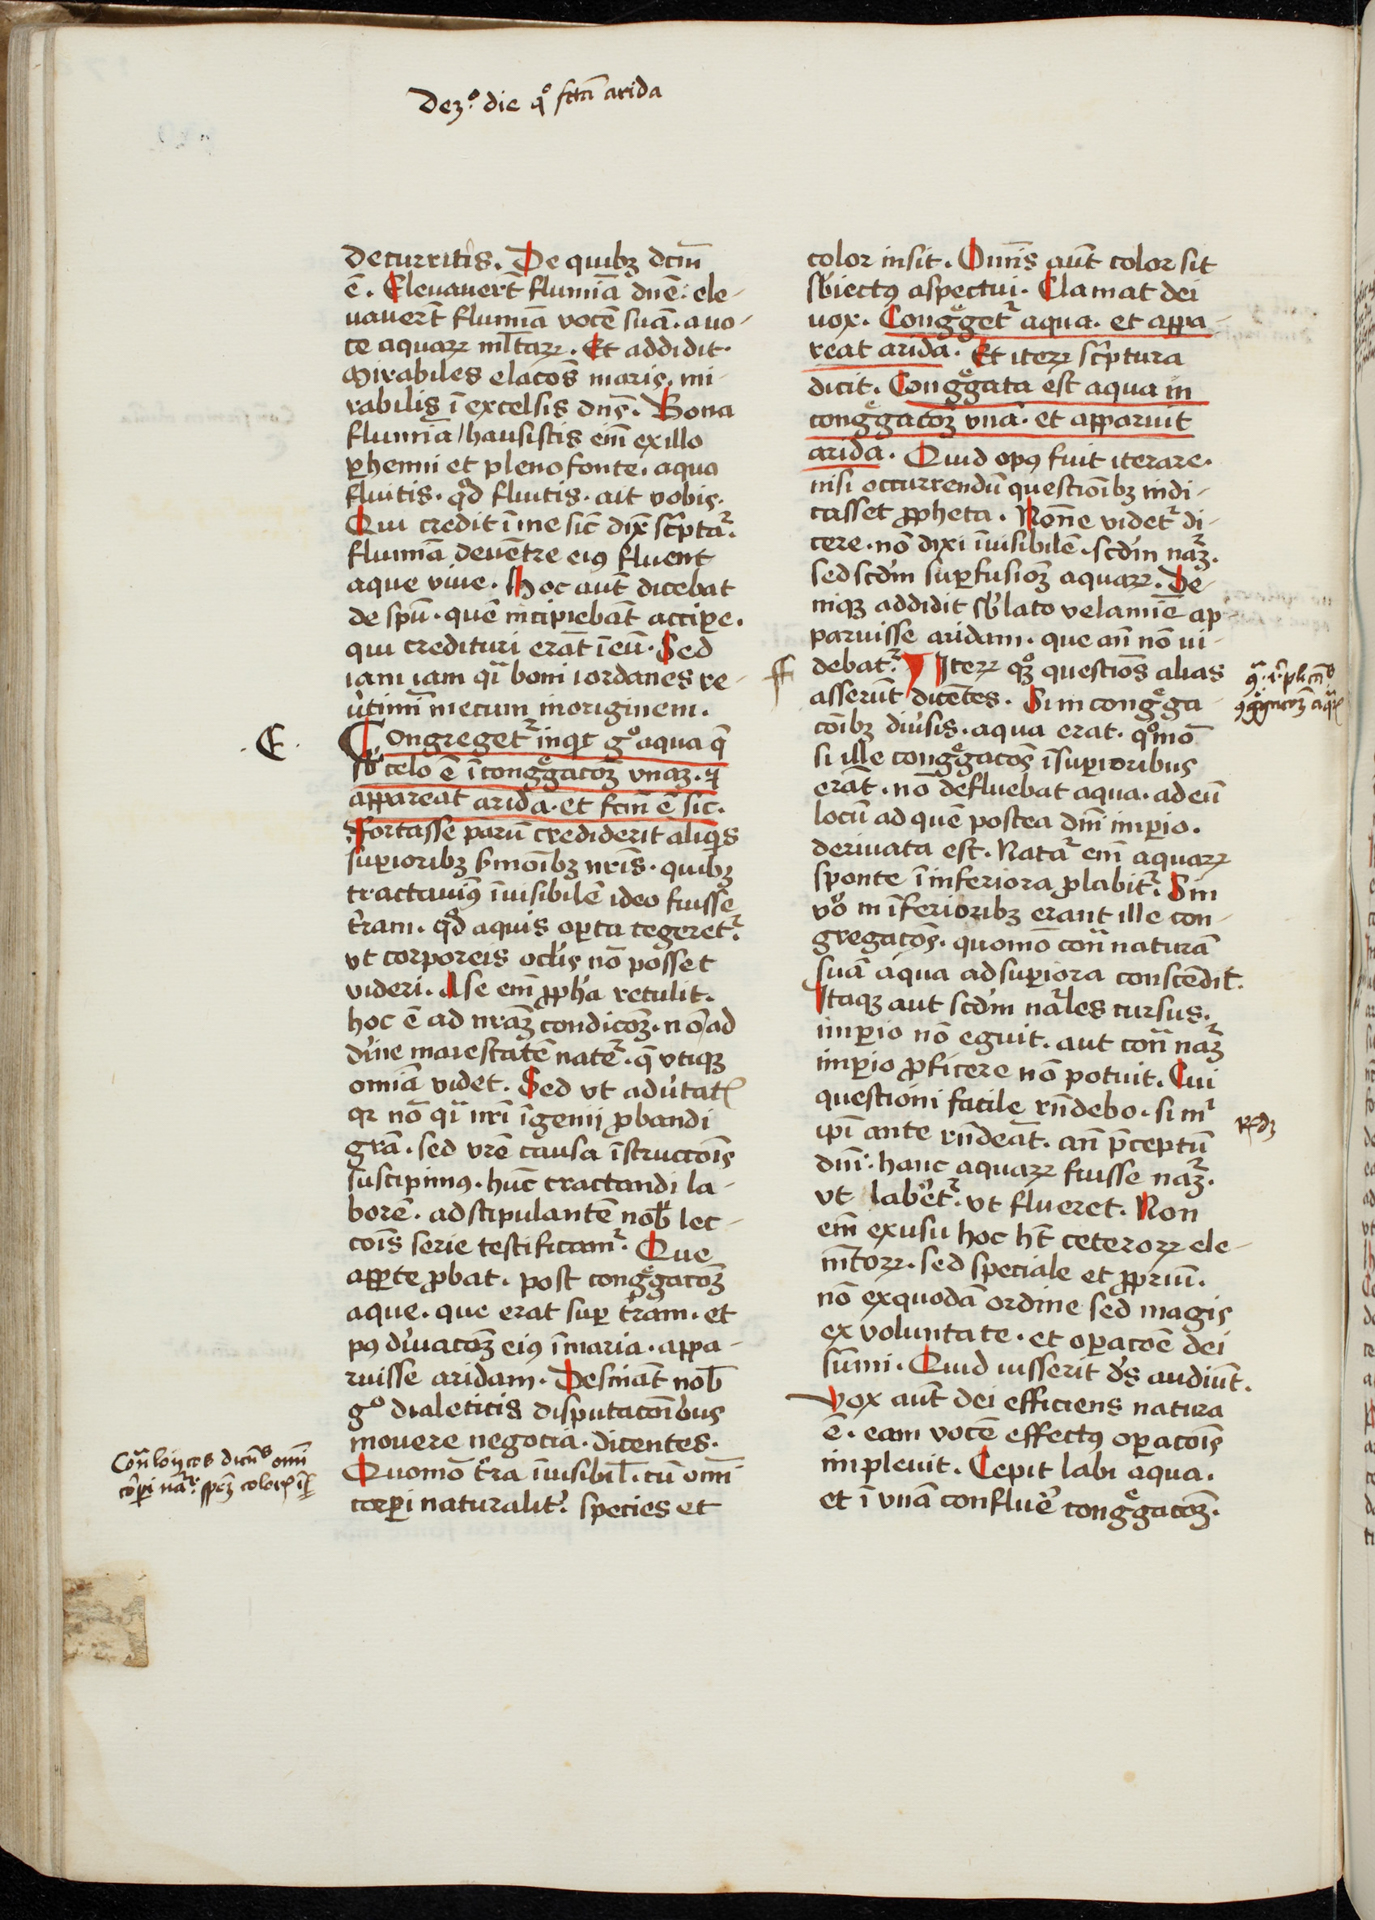 De 3.º die qº fctā arida
decurritis. De quibꝫ dcm̄
ē. Eleuauerт̄ flumiā dn̄e. ele-
uauerт̄ flumiā vocē suā. a uo-
ce aquaꝝ ml̄taꝝ. Et addidit.
Mirabiles elacōs maris. mi-
rabilis ī excelsis dn̄s. Bona
flumiā / hausistis em̄ ex illo
ꝑhenni et pleno fonte. aqua
fluitis. qd̓ fluitis. ait vobis.
Qui credit ī me sic̄ dix̄ sc̓ptaᷣ.
flumiā de uētre eiꝰ fluent
aque viue. Hoc aut̄ dicebat
de spū. quē incipiebāt acciꝑe.
qui credituri erāt ī eū. Sed
iam iam qͣi boni iordanes re-
ūtimī mecum in originem.
E
Congregetᷣ inqͥt gº aqua q̄
sb̓ celo ē ī congͤgacōꝫ vnaꝫ. ⁊
appareat arida. et fcm̄ ē sic.
Fortasse parū crediderit aliqͥs
suꝑioribꝫ ẜmoībꝫ nr̄is. quibꝫ
tractauimꝰ īuisibilē ideo fuisse
t̓ram. qd̓ aquis oꝑta tegeretᷣ.
vt corporeis oclis nō posset
videri. A se em̄ ꝓph̓a retulit.
hoc ē ad nr̄aꝫ condicōꝫ. nō ad
diuīe maiestatē nat̓e. q̄ vtiqꝫ
omīa videt. Sed vt adūtatꝭ
qꝛ nō qͣ nr̄i īgenij ꝓbandi
grā. sed vr̄e causa īstruccōis
suscipimꝰ. hūc tractandi la-
borē. adstipulantē nob̄ lec-
cōis serie testificamᷣ. Que
aꝑte ꝓbat. post congͤgacōꝫ
aque. que erat suꝑ t̓ram. et
pꝰ d̓iuacōꝫ eiꝰ ī maria. appa-
ruisse aridam. Desināt nob̄
gº dialeticis disputacōibus
mouere negocia. dicentes.
Quomō t̓ra īuisibil̄. cū omī
corꝑi naturalit̓. species et
color insit. Omīs aut̄ color sit
sb̓iectꝰ aspectui. Clamat dei
uox. Congͤgetᷣ aqua. et appa-
reat arida. Et iteꝝ sc̓ptura
dicit. Congͤgata est aqua in
congͤgacōꝫ vnā. et apparuit
arida. Quid opꝰ fuit iterare.
nisi occurrendū questiōibꝫ indi-
casset ꝓpheta. Nōne videtᷣ di-
cere. nō dixi īuisibilē. scd̓m naᷣꝫ.
sed scd̓m suꝑfusiōꝫ aquaꝝ. De-
niqꝫ addidit sb̓lato velamīe ap-
paruisse aridam. que an̄ nō ui-
debatᷣ. Iteꝝ qꝫ questiōs alias
asserūt dicētes. Si in congͤga-
cōibꝫ diūsis. aqua erat. qºmō
si ille congͤgacōs ī suꝑioribus
erāt. nō defluebat aqua. ad eū
locū ad quē postea dnī imꝑio.
deriuata est. Nataᷣ em̄ aquaꝝ
sponte ī inferiora ꝓlabitᷣ. Sin
vº in īferioribꝫ erant ille con-
gregacōs. quomō con̄ naturā
suā aqua ad suꝑiora conscēdit.
Itaqꝫ aut scd̓m naᷣles cursus.
imꝑio nō eguit. aut con̄ naᷣꝫ
imꝑio ꝓficere nō potuit. Cui
questioni facile rn̄debo. si mᷤ
ip̄i ante rn̄deāt. an̄ p̄ceptū
dnī. hanc aquaꝝ fuisse naᷣꝫ.
vt laberetᷣ. vt flueret. Non
em̄ ex usu hoc hт̄ ceteroꝝ ele-
mētoꝝ. sed speciale et ꝓpriū.
nō ex quodā ordine sed magis
ex voluntate. et oꝑacōe dei
sum̄i. Quid iusserit ds̄ audiūt.
Vox aut̄ dei efficiens natura
ē. eam vocē effectꝰ oꝑacōis
impleuit. Cepit labi aqua.
et ī vnā confluē congͤgacōꝫ.
Rdꝫ